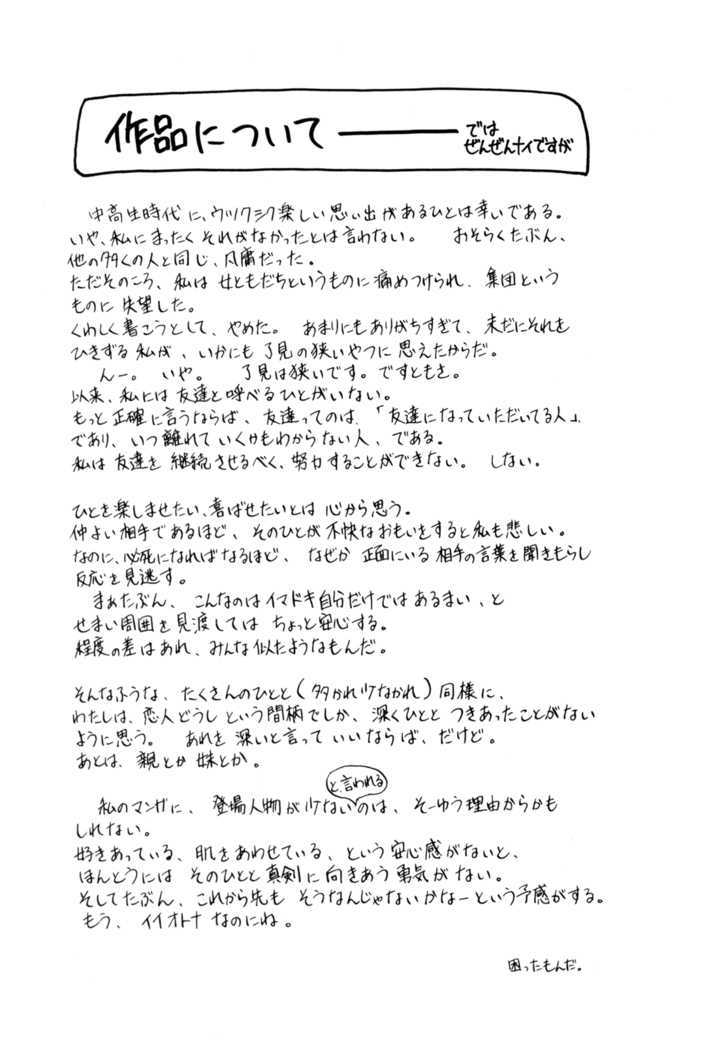 作品について――― では
ぜんぜんナイですが
中高生時代に、ウツクシク楽しい思い出があるひとは幸いである。
いや、私にまったくそれがなかったとは言わない。 おそらくたぶん、
他の多くの人と同じ、凡庸だった。
ただそのころ、私は女ともだちというものに痛めつけられ、集団という
ものに失望した。
くわしく書こうとして、やめた。 あまりにもありがちすぎて、未だにそれを
ひきずる私が、いかにも了見の狭いやつに思えたからだ。
んー。 いや。 了見は狭いです。ですともさ。
以来、私には友達と呼べるひとがいない。
もっと正確に言うならば、友達ってのは、「友達になっていただいてる人」
であり、いつ離れていくかもわからない人、である。
私は友達を継続させるべく、努力することができない。 しない。
ひとを楽しませたい、喜ばせたいとは心から思う。
仲よい相手であるほど、そのひとが不快なおもいをすると私も悲しい。
なのに、必死になればなるほど、なぜか正面にいる相手の言葉を聞きもらし
反応を見逃す。
まぁたぶん、こんなのはイマドキ自分だけではあるまい、と
せまい周囲を見渡してはちょっと安心する。
程度の差はあれ、みんな似たようなもんだ。
そんなふうな、たくさんのひとと(多かれ少なかれ)同様に、
わたしは、恋人どうしという間柄でしか、深くひととつきあったことがない
ように思う。 あれを深いと言っていいならば、だけど。
あとは、親とか妹とか。
私のマンガに、登場人物が少ないと言われるのは、そーゆう理由からかも
しれない。
好きあっている、肌をあわせている、という安心感がないと、
ほんとうにはそのひとと真剣に向きあう勇気がない。
そしてたぶん、これから先もそうなんじゃないかなーという予感がする。
もう、イイオトナなのにね。
困ったもんだ。